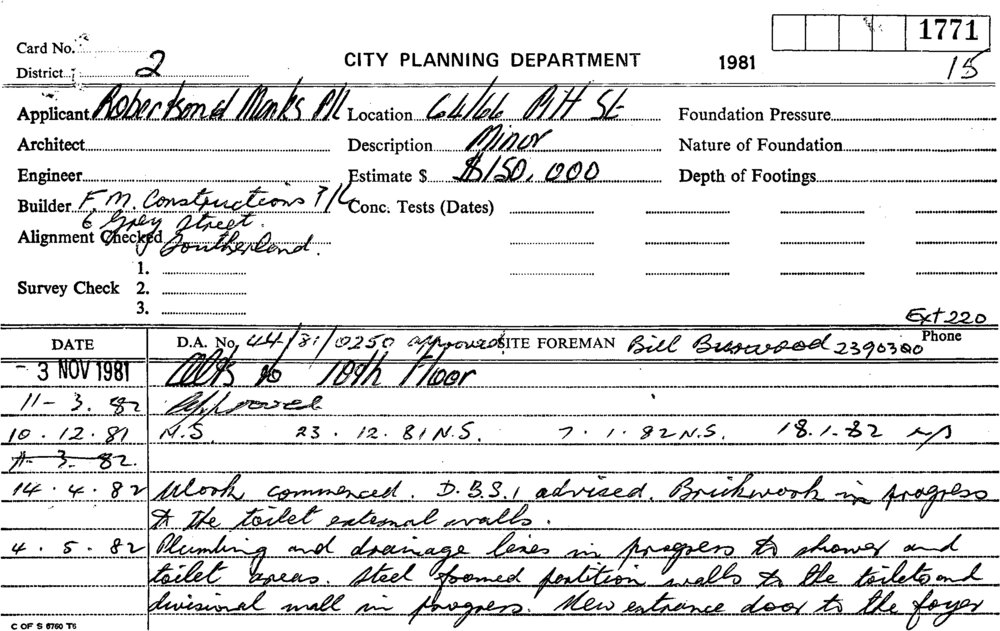 1771
Card No.
CITY PLANNING DEPARTMENT 1981 15
District 2
Applicant Robertson & Monks P/L Location 64/66 Pitt St Foundation Pressure
Architect Description Minor Nature of Foundation
Engineer Estimate $ $150,000 Depth of Footings
Builder F.M. Constructions P/L Conc. Tests (Dates)
6 Grey Street
Alignment Checked Southerland.
1.
Survey Check 2.
3.
Ext 220
DATE D.A. No. 44/81/0250 approved SITE FOREMAN Bill 2390300 Phone
- 3 NOV 1981 Alts to 10th Floor
11-3.82 Approved
10.12.81 N.S. 23.12.81 N.S. 7.1.82 N.S. 18.1.82
11-3-82.
14.4.82 Work commenced. D.B.S.1 advised. Brickwork in progress
to the toilet external walls.
4.5.82 Plumbing and drainage lines in progress to shower and
toilet areas. Steel framed partition walls to the toilets and
divisional wall in progress. New entrance door to the foyer
C OF S 6760 T6